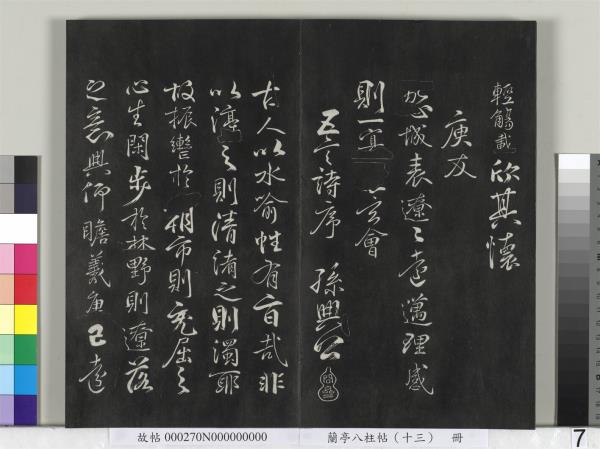 輕觴載欣其懷
庾友
馳城表遼〻遠邁理感
則一冥玄會
五言詩序 孫興公
古人以水喻性有旨哉非
以渟之則清淆之則濁耶
故振轡於朝市則充屈之
心生閑步於林野則遼落
之意興仰瞻羲唐已遠
故帖 000270N000000000 蘭亭八柱帖（十三） 冊
7